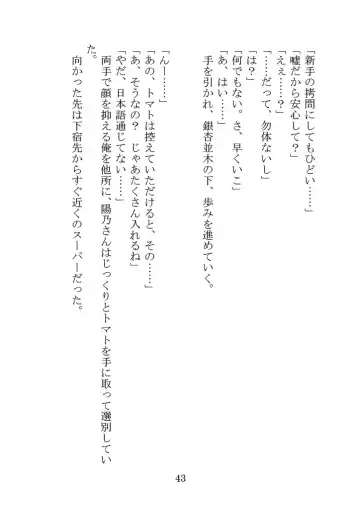 「新手の拷問にしてもひどい……」
「嘘だから安心して？」
「えぇ……？」
「……だって、勿体ないし」
「は？」
「何でもない。さ、早くいこ」
「あ、はい……」
　手を引かれ、銀杏並木の下、歩みを進めていく。
「んー……」
「あの、トマトは控えていただけると、その……」
「あ、そうなの？　じゃあたくさん入れるね」
「やだ、日本語通じてない……」
　両手で顔を抑える俺を他所に、陽乃さんはじっくりとトマトを手に取って選別してい
た。
　向かった先は下宿先からすぐ近くのスーパーだった。
43